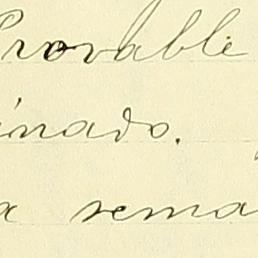 Provable
inado.
a sema